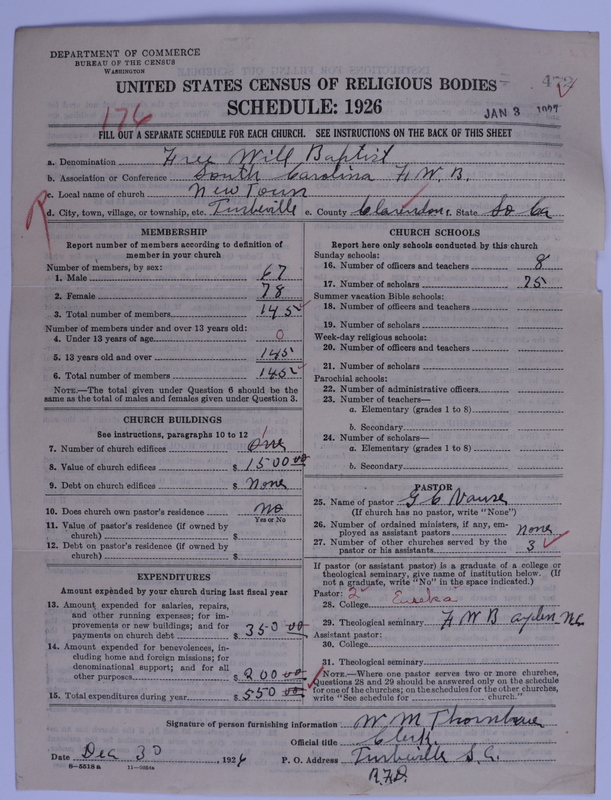 DEPARTMENT OF COMMERCE
BUREAU OF THE CENSUS
WASHINGTON
UNITED STATES CENSUS OF RELIGIOUS BODIES
SCHEDULE: 1926
JAN 3
176
FILL OUT A SEPARATE SCHEDULE FOR EACH CHURCH. SEE INSTRUCTIONS ON THE BACK OF THIS SHEET
a. Denomination Free Will Baptist
b. Association or Conference South Carolina F. W. B.
c. Local name of church New Town
d. City, town, village, or township, etc. Turbeville e. County Clarendon f. State So Ca
MEMBERSHIP
Report number of members according to definition of
member in your church
Number of members, by sex:
1. Male 67
2. Female 78
3. Total number of members 145
Number of members under and over 13 years old:
4. Under 13 years of age 0
5. 13 years old and over 145
6. Total number of members 145
NOTE.—The total given under Question 6 should be the
same as the total of males and females given under Question 3.
CHURCH BUILDINGS
See instructions, paragraphs 10 to 12
7. Number of church edifices One
8. Value of church edifices $ 1500 00
9. Debt on church edifices $ None
10. Does church own pastor's residence No
Yes or No
11. Value of pastor's residence (if owned by
church) $
12. Debt on pastor's residence (if owned by
church) $
EXPENDITURES
Amount expended by your church during last fiscal year
13. Amount expended for salaries, repairs,
and other running expenses; for im-
provements or new buildings; and for
payments on church debt $ 350 00
14. Amount expended for benevolences, in-
cluding home and foreign missions; for
denominational support; and for all
other purposes $ 200 00
15. Total expenditures during year $ 550 00
CHURCH SCHOOLS
Report here only schools conducted by this church
Sunday schools:
16. Number of officers and teachers 8
17. Number of scholars 75
Summer vacation Bible schools:
18. Number of officers and teachers
19. Number of scholars
Week-day religious schools:
20. Number of officers and teachers
21. Number of scholars
Parochial schools:
22. Number of administrative officers
23. Number of teachers—
a. Elementary (grades 1 to 8)
b. Secondary
24. Number of scholars—
a. Elementary (grades 1 to 8)
b. Secondary
PASTOR
25. Name of pastor G C Vause
(If church has no pastor, write "None")
26. Number of ordained ministers, if any, em-
ployed as assistant pastors None
27. Number of other churches served by the
pastor or his assistants 3
If pastor (or assistant pastor) is a graduate of a college or
theological seminary, give name of institution below. (If
not a graduate, write "No" in the space indicated.)
Pastor: 2
28. College Eureka
29. Theological seminary F W B Ayden N C
Assistant pastor:
30. College
31. Theological seminary
NOTE.—Where one pastor serves two or more churches,
Questions 28 and 29 should be answered only on the schedule
for one of the churches; on the schedules for the other churches,
write "See schedule for church."
Signature of person furnishing information W M
Official title Clerk
Date Dec 30, 1926 P. O. Address Turbeville S. C.
R.F.D.
8-5518 a